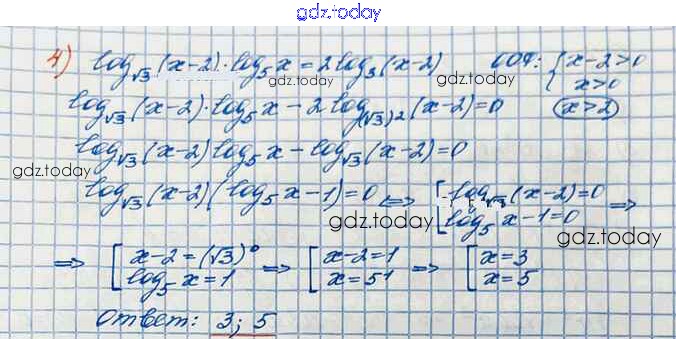 gdz.today
4) log_√3 (x-2) · log_5 x = 2 log_3 (x-2) ООФ: { x-2>0
gdz.today gdz.today
x>0
log_√3 (x-2) · log_5 x - 2 log_(√3)2 (x-2) = 0 (x>2)
log_√3 (x-2) log_5 x - log_√3 (x-2) = 0
gdz.today
log_√3 (x-2) (log_5 x - 1) = 0 <=> [ log_√3 (x-2) = 0
log_5 x - 1 = 0 =>
gdz.today gdz.today
=> [ x-2 = (√3)^0 => [ x-2 = 1 => [ x = 3
log_5 x = 1 x = 5^1 x = 5
Ответ: 3; 5
gdz.today gdz.today